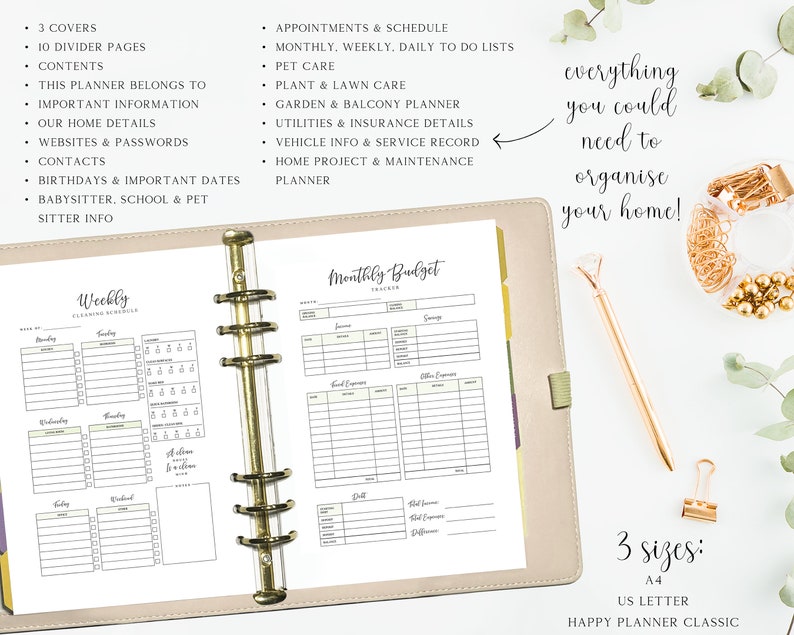 3 COVERS
10 DIVIDER PAGES
CONTENTS
THIS PLANNER BELONGS TO
IMPORTANT INFORMATION
OUR HOME DETAILS
WEBSITES & PASSWORDS
CONTACTS
BIRTHDAYS & IMPORTANT DATES
BABYSITTER, SCHOOL & PET
SITTER INFO
APPOINTMENTS & SCHEDULE
MONTHLY, WEEKLY, DAILY TO DO LISTS
PET CARE
PLANT & LAWN CARE
GARDEN & BALCONY PLANNER
UTILITIES & INSURANCE DETAILS
VEHICLE INFO & SERVICE RECORD
HOME PROJECT & MAINTENANCE
PLANNER
everything
you could
need to
organise
your home!
Weekly
CLEANING SCHEDULE
WEEK OF:
Monday
Tuesday
KITCHEN
BEDROOMS
LAUNDRY
M T W T F
CLEAN SURFACES
M T W T F
MAKE BED
M T W T F
M T W T F
M T W T F
Wednesday
Thursday
LIVING ROOM
BATHROOMS
A clean
HOUSE
Is a clean
MIND
NOTES
Friday
Weekend
OFFICE
OTHER
Monthly Budget
TRACKER
MONTH:
OPENING
BALANCE
CLOSING
BALANCE
Income
Saving
DATE DETAILS AMOUNT
STARTING
BALANCE
DEPOSIT
DEPOSIT
BALANCE
Fixed Expenses
Other Expenses
DATE DETAILS AMOUNT
DATE DETAILS AMOUNT
TOTAL
TOTAL
Debt
STARTING
DEBT
DEPOSIT
DEPOSIT
DEPOSIT
BALANCE
Total Income:
Total Expenses:
Difference:
3 sizes:
A4
US LETTER
HAPPY PLANNER CLASSIC